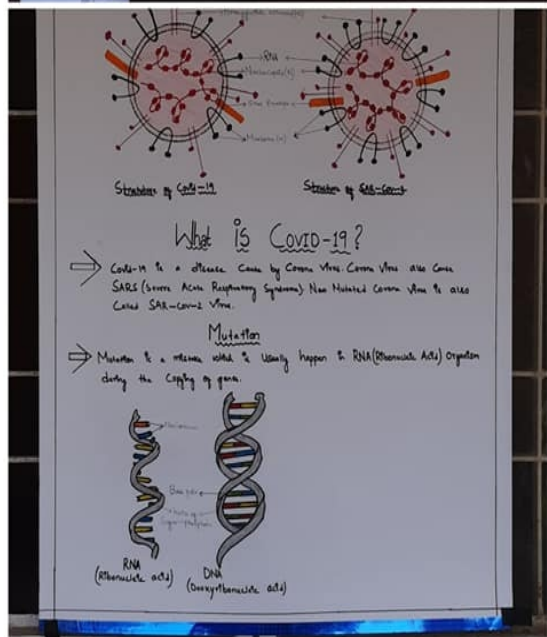 RNA
Nucleocapsid(N)
Envelope
Membrane(M)
Structure of Covid-19
Structure of SAR-Cov-2
What is COVID-19?
Covid-19 is a disease cause by Corona Virus. Corona Virus also cause
SARS (Severe Acute Respiratory Syndrome). New Mutated Corona Virus is also
Called SAR-Cov-2 Virus.
Mutation
Mutation is a mistake which is usually happen in RNA(Ribonucleic Acid) Organism
during the Copying of genes.
Base pair
Sugar-phosphate
RNA
(Ribonucleic acid)
DNA
(Deoxyribonucleic acid)